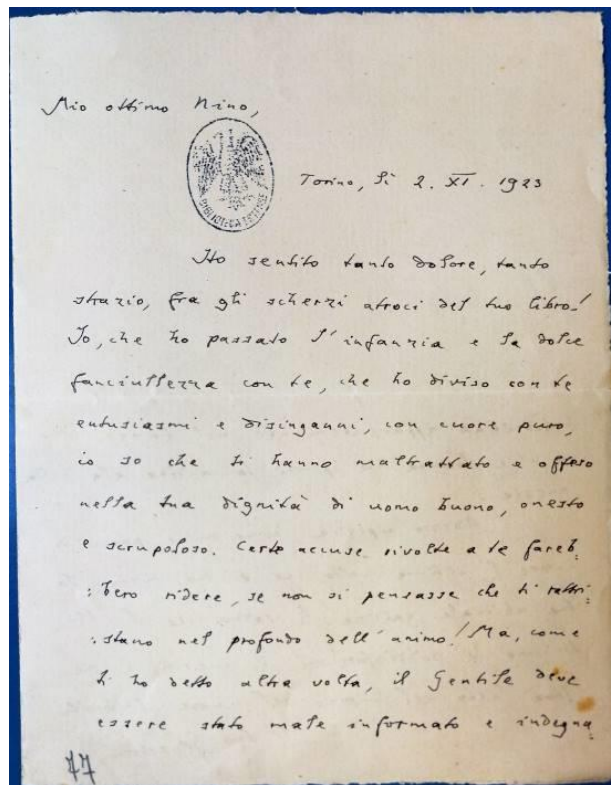 Mio ottimo Nino,
BIBLIOTECA ESTENSE
Torino, lì 2. XI. 1923
Ho sentito tanto dolore, tanto
strazio, fra gli scherzi atroci del tuo libro!
Io, che ho passato l'infanzia e la dolce
fanciullezza con te, che ho diviso con te
entusiasmi e disinganni, con cuore puro,
io so che ti hanno maltrattato e offeso
nella tua dignità di uomo buono, onesto
e scrupoloso. Certe accuse rivolte a te fareb:
:bero ridere, se non si pensasse che ti rattri:
:stano nel profondo dell'animo! Ma, come
ti ho detto altra volta, il Gentile deve
essere stato male informato e indegna
77